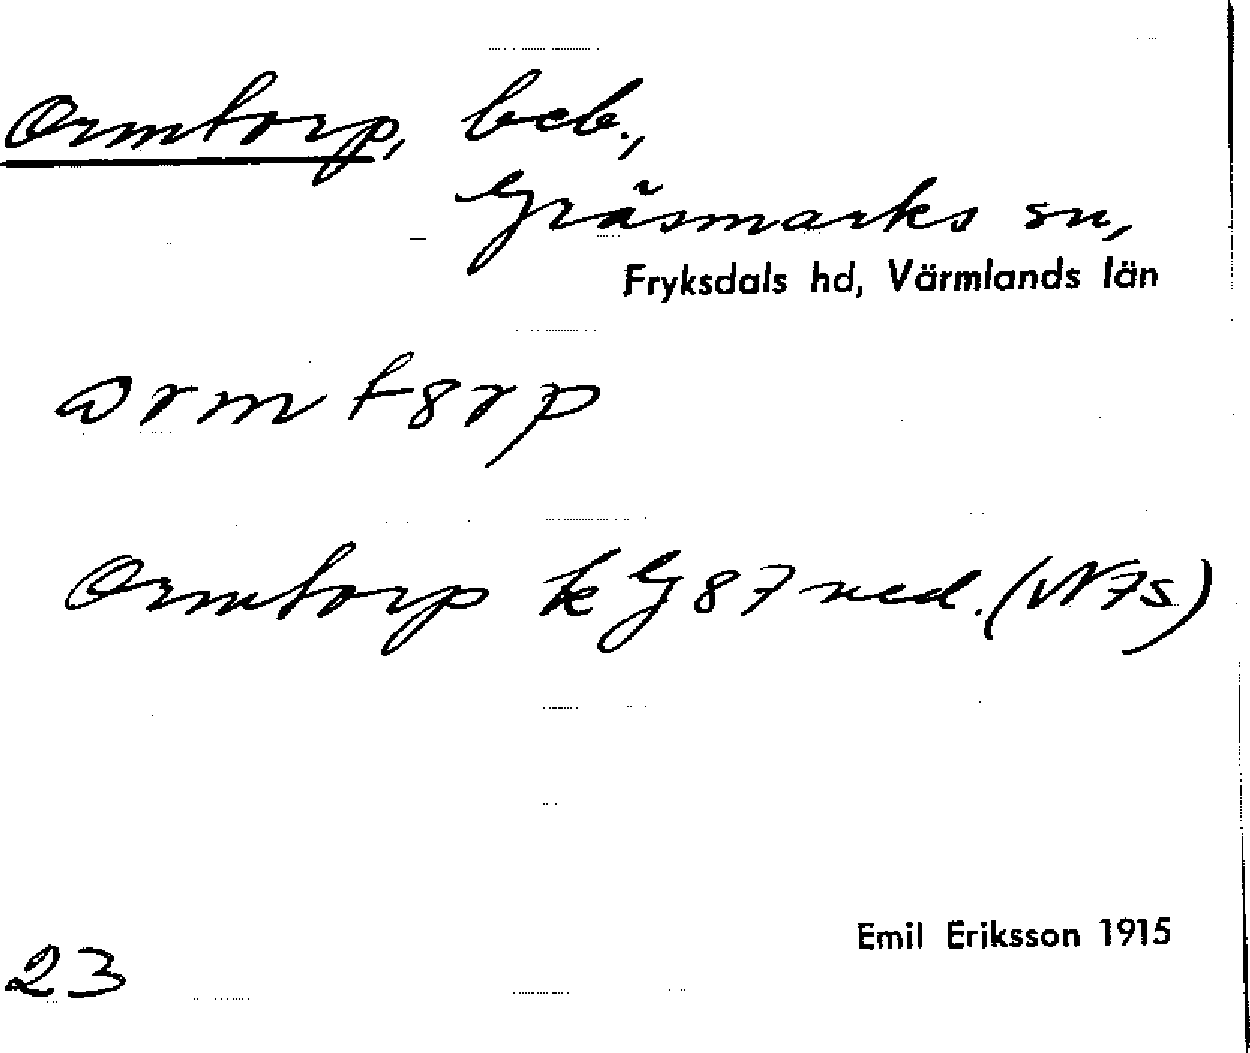 Ormtorp, beb.,
Gräsmarks sn,
Fryksdals hd, Värmlands län
ormt8rp
Ormtorp k G 87 ned. (N7S)
Emil Eriksson 1915
23